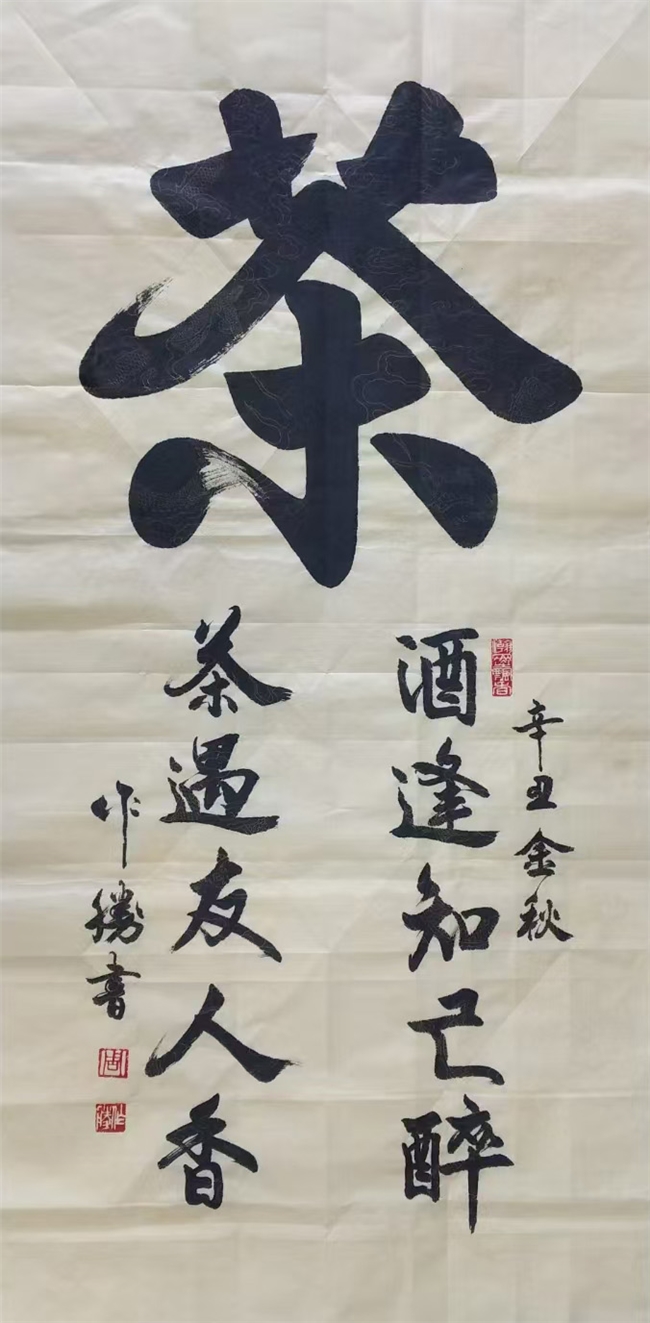 茶
辛丑金秋
酒逢知己醉
茶遇友人香
作勝書
周
作勝